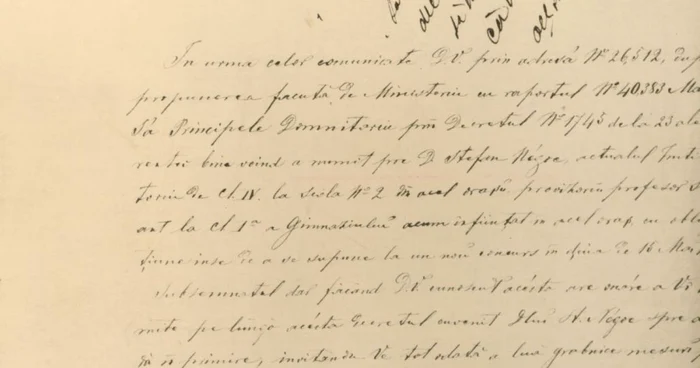 In urma celor comunicate D.V. prin adresa Nº 26512, dup
propunerea facută de Ministeriu cu raportul Nº 40,383 Ma
Sa Principele Domnitoriu prin Decretul Nº 1745 de la 23 ale
rentei bine voind a numit pre D Stefan Négoe, actualul Insti
toriu de Cl. IV. la scola Nº 2 din acel orașu, provisoriu profesor s
ant la Cl. I a Gimnasiului acum infiintat in acel oraș, cu obli
țiune inse de a se supune la un nou concurs in diua de 16 Mai
Subsemnatul dar făcând D.V. cunoscut acésta are onóre a Vĕ
mite pe lângă acésta Decretul cuvenit Dlui St. Négoe spre a
da in primire, invitându Ve tot odată a lua grabnice mesuri